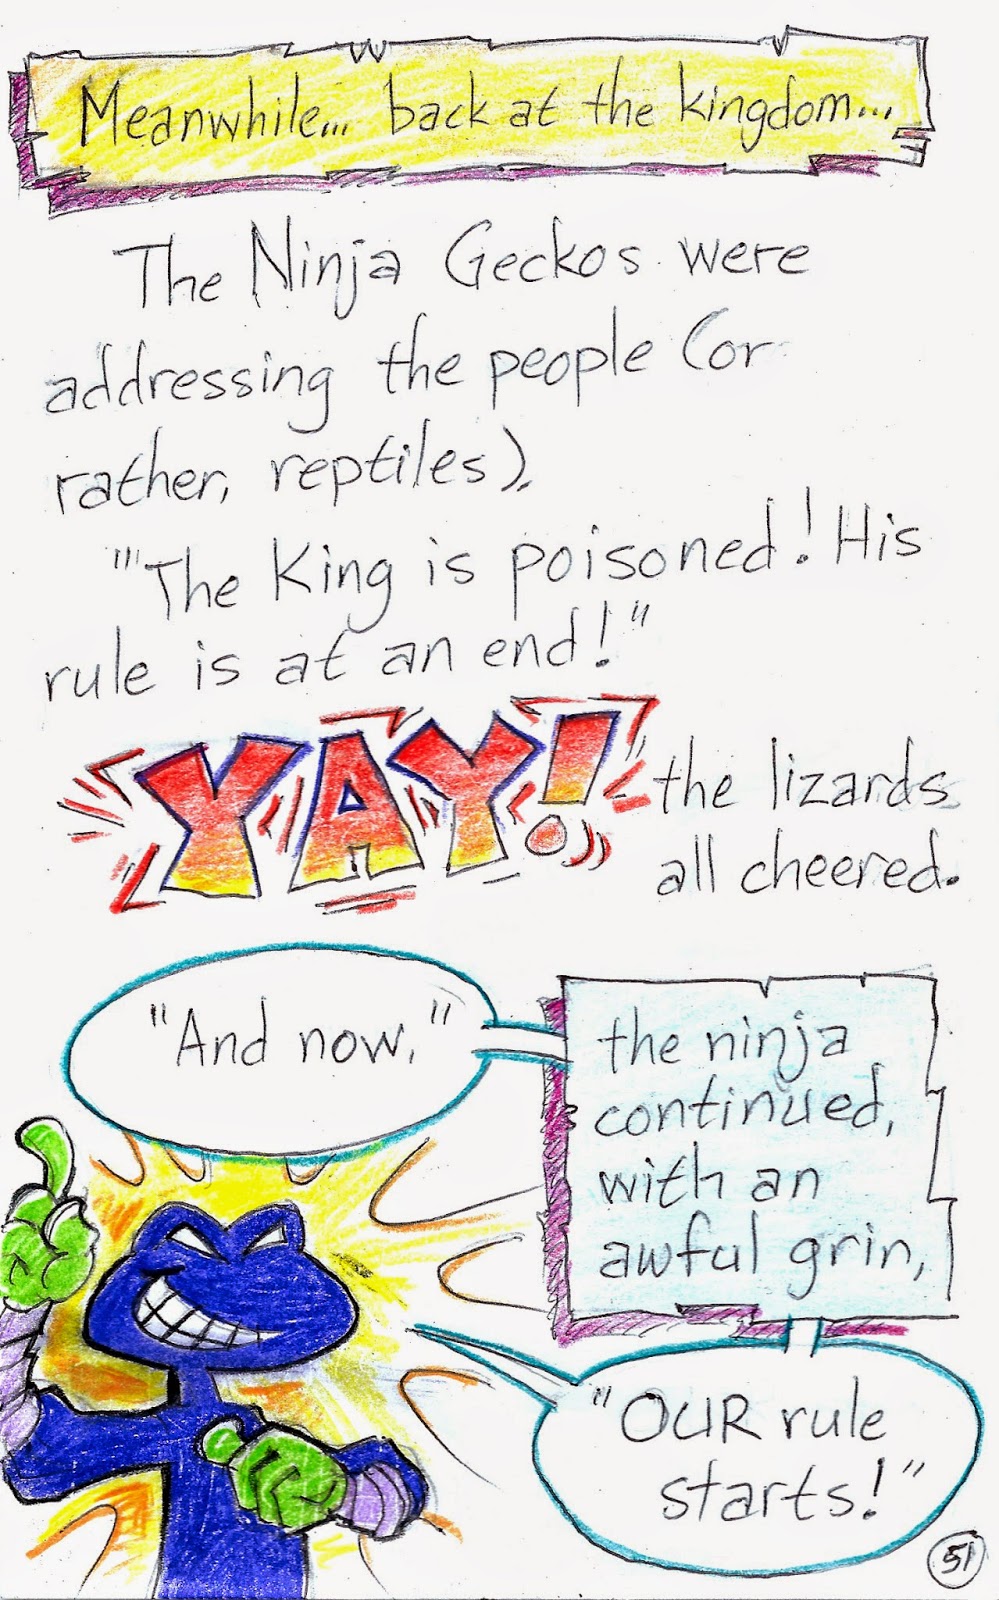 Meanwhile... back at the kingdom...
The Ninja Geckos were
addressing the people (or
rather, reptiles).
"'The King is poisoned! His
rule is at an end!"
YAY! the lizards
all cheered.
"And now,"
the ninja
continued,
with an
awful grin,
"OUR rule
starts!"
51